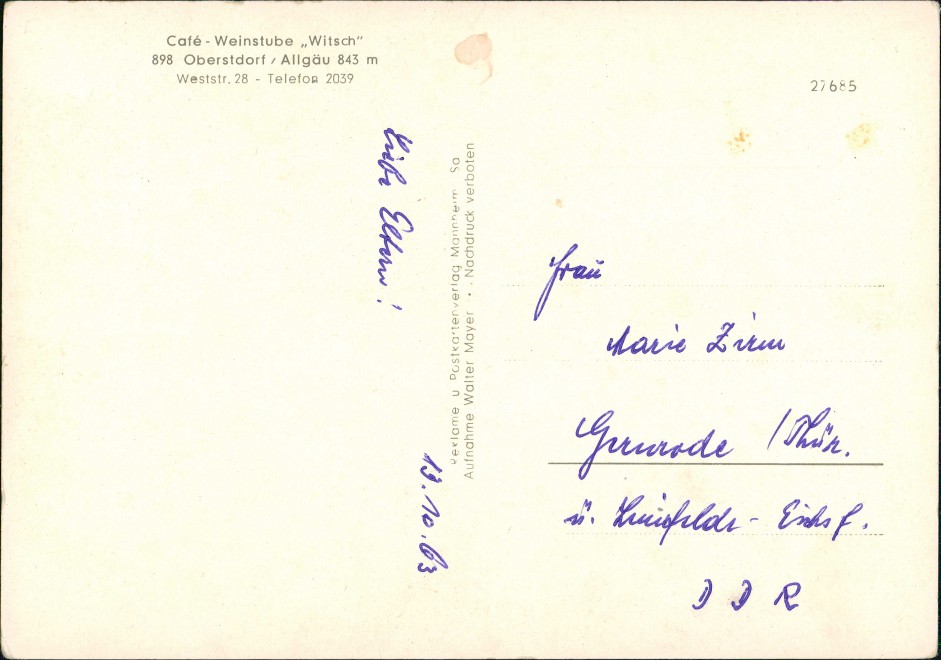 Café - Weinstube „Witsch"
898 Oberstdorf / Allgäu 843 m
Weststr. 28 - Telefon 2039
27685
Liebe Eltern!
13.10.63
Reklame u Postkartenverlag Mannheim Sa
Aufnahme Walter Mayer • . Nachdruck verboten
Frau
Marie Zirm
Gernrode / Thür.
ü. Leinefelde - Eichsf.
D D R